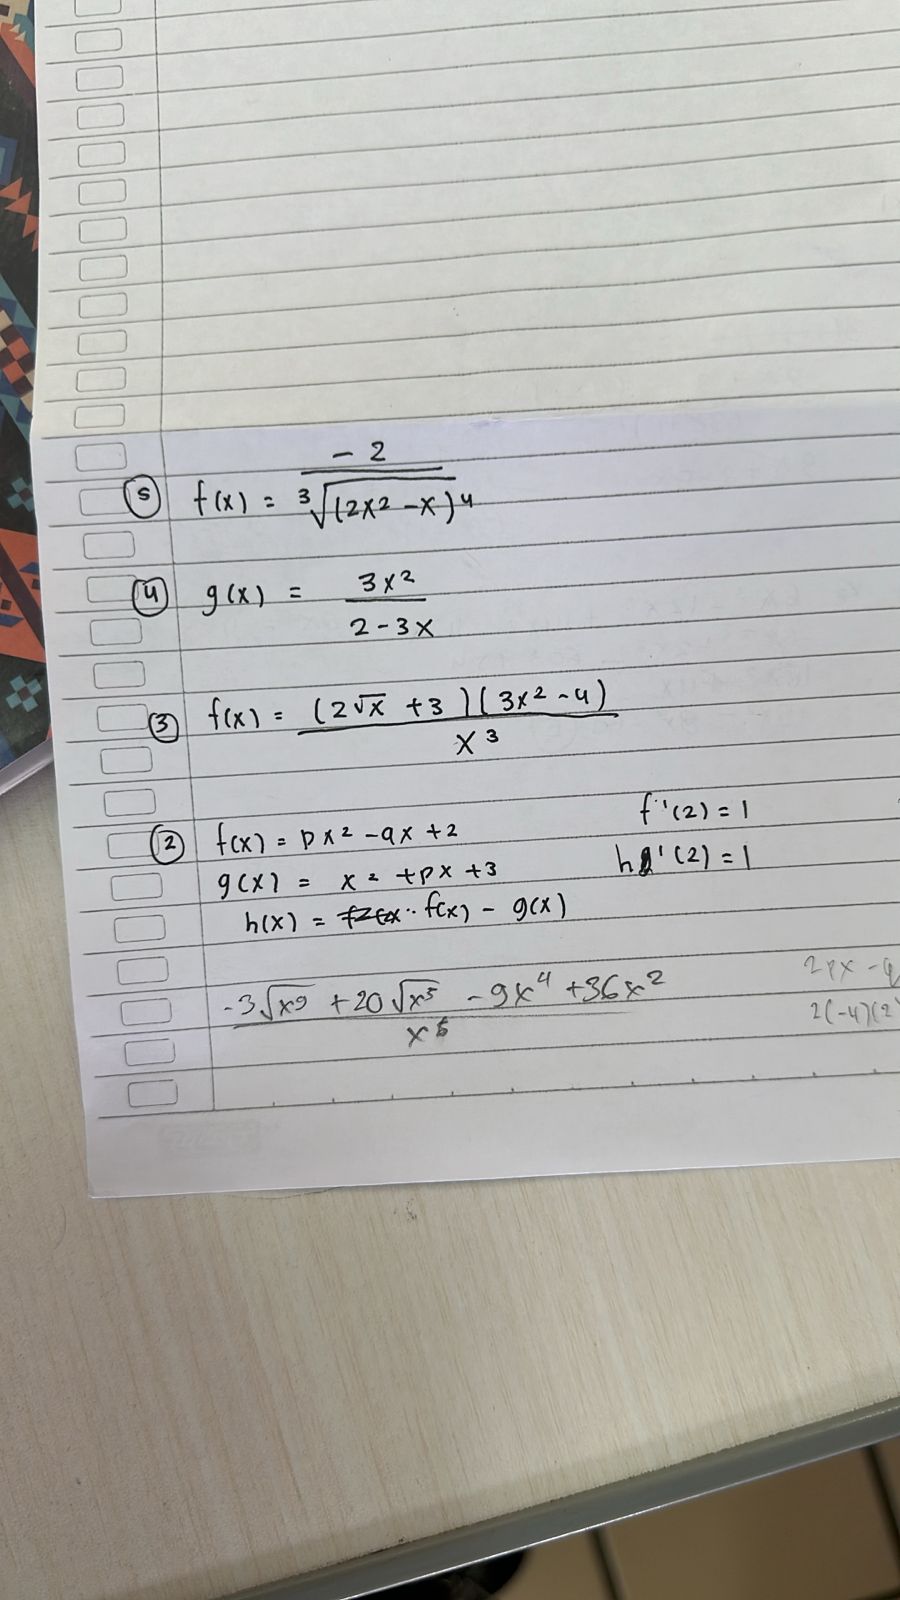 ⑤ f(x) = -2 / ∛(2x² - x)⁴
④ g(x) = 3x² / 2 - 3x
③ f(x) = (2√x + 3)(3x² - 4) / x³
② f(x) = px² - qx + 2 f'(2) = 1
g(x) = x² + px + 3 h'(2) = 1
h(x) = f(x) - g(x)
-3√x⁹ + 20√x⁵ - 9x⁴ + 36x² / x⁶ 2px - q
2(-4)(2)